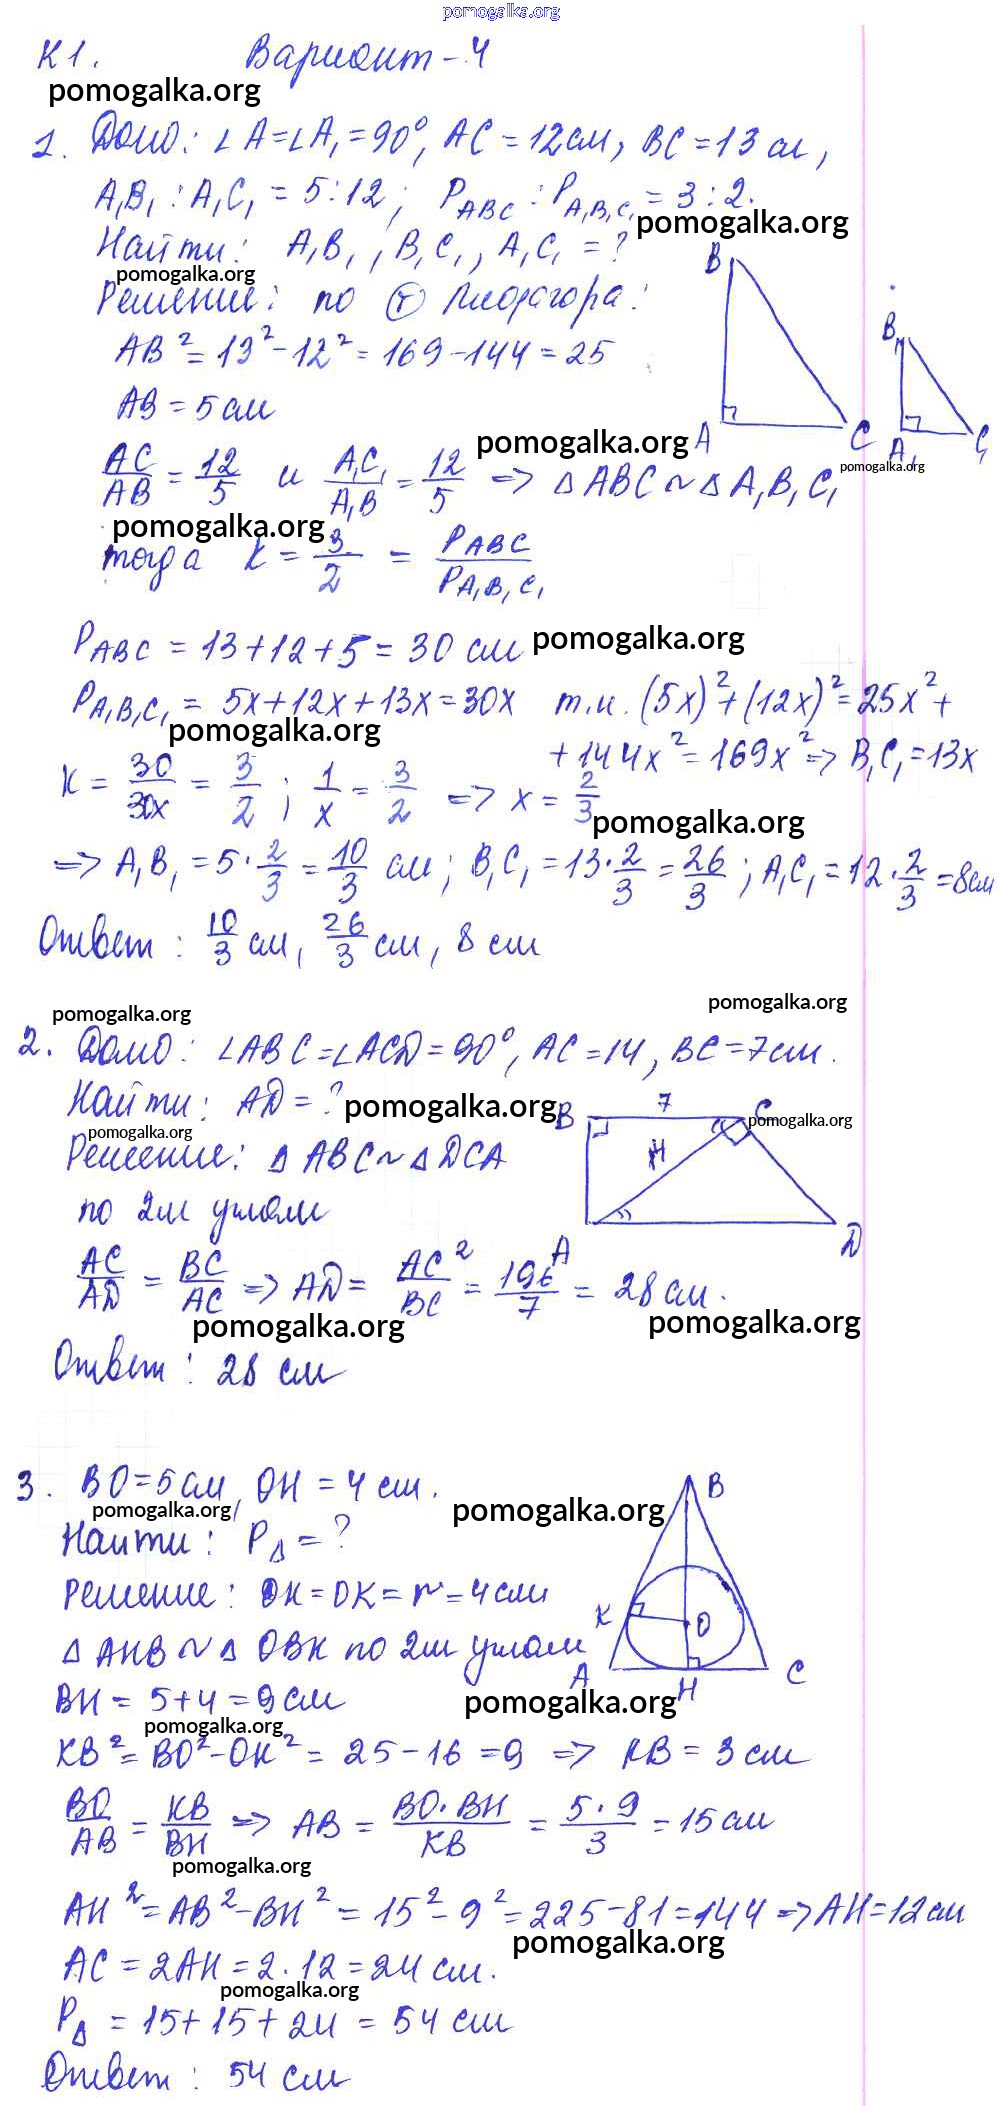 pomogalka.org
К1. Вариант-4
pomogalka.org
1. Дано: ∠A=∠A₁=90°, AC=12см, BC=13см,
A₁B₁:A₁C₁=5:12; P_ABC:P_A₁B₁C₁=3:2.
pomogalka.org
Найти: A₁B₁, B₁C₁, A₁C₁=?
pomogalka.org
B
Решение: по т Пифагора:
B₁
AB²=13²-12²=169-144=25
AB=5см
pomogalka.org
A C A₁ C₁
pomogalka.org
AC/AB = 12/5 и A₁C₁/A₁B = 12/5 => ΔABC~ΔA₁B₁C₁
pomogalka.org
тогда K = 3/2 = P_ABC/P_A₁B₁C₁
P_ABC=13+12+5=30 см
pomogalka.org
P_A₁B₁C₁=5x+12x+13x=30x т.к. (5x)²+(12x)²=25x²+
pomogalka.org
+144x²=169x² => B₁C₁=13x
K = 30/30x = 3/2; 1/x = 3/2 => x = 2/3
pomogalka.org
=> A₁B₁=5·2/3=10/3 см; B₁C₁=13·2/3=26/3; A₁C₁=12·2/3=8см
Ответ: 10/3 см, 26/3 см, 8 см
pomogalka.org
pomogalka.org
2. Дано: ∠ABC=∠ACD=90°, AC=14, BC=7см.
Найти: AD=?
pomogalka.org
B 7 C
pomogalka.org
pomogalka.org
Решение: ΔABC~ΔDCA
14
по 2м углам
A D
AC/AD = BC/AC => AD = AC²/BC = 196/7 = 28см.
pomogalka.org
pomogalka.org
Ответ: 28 см
3. BO=5см, OH=4см.
B
pomogalka.org
pomogalka.org
Найти: P_Δ=?
Решение: OH=OK=r=4см
K O
ΔAHB~ΔOBK по 2м углам
A H C
BH=5+4=9см
pomogalka.org
pomogalka.org
KB²=BO²-OK²=25-16=9 => KB=3см
BO/AB = KB/BH => AB = BO·BH/KB = 5·9/3 = 15см
pomogalka.org
AH²=AB²-BH²=15²-9²=225-81=144 => AH=12см
pomogalka.org
AC=2AH=2·12=24см.
pomogalka.org
P_Δ=15+15+24=54см
Ответ: 54 см